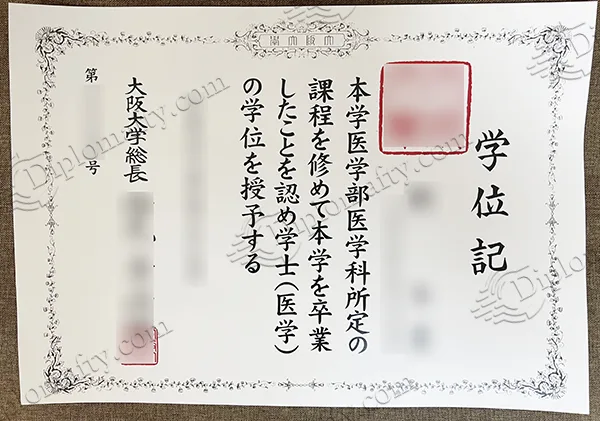 学位記
本学医学部医学科所定の
課程を修めて本学を卒業
したことを認め学士(医学)
の学位を授予する
大阪大学総長
第
号
Diplomafty.com
Diplomafty.com
Diplomafty.com
Diplomafty.com